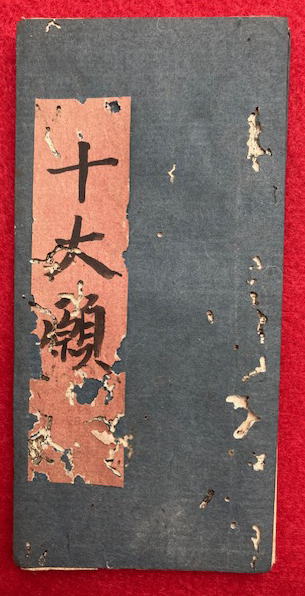 十大願